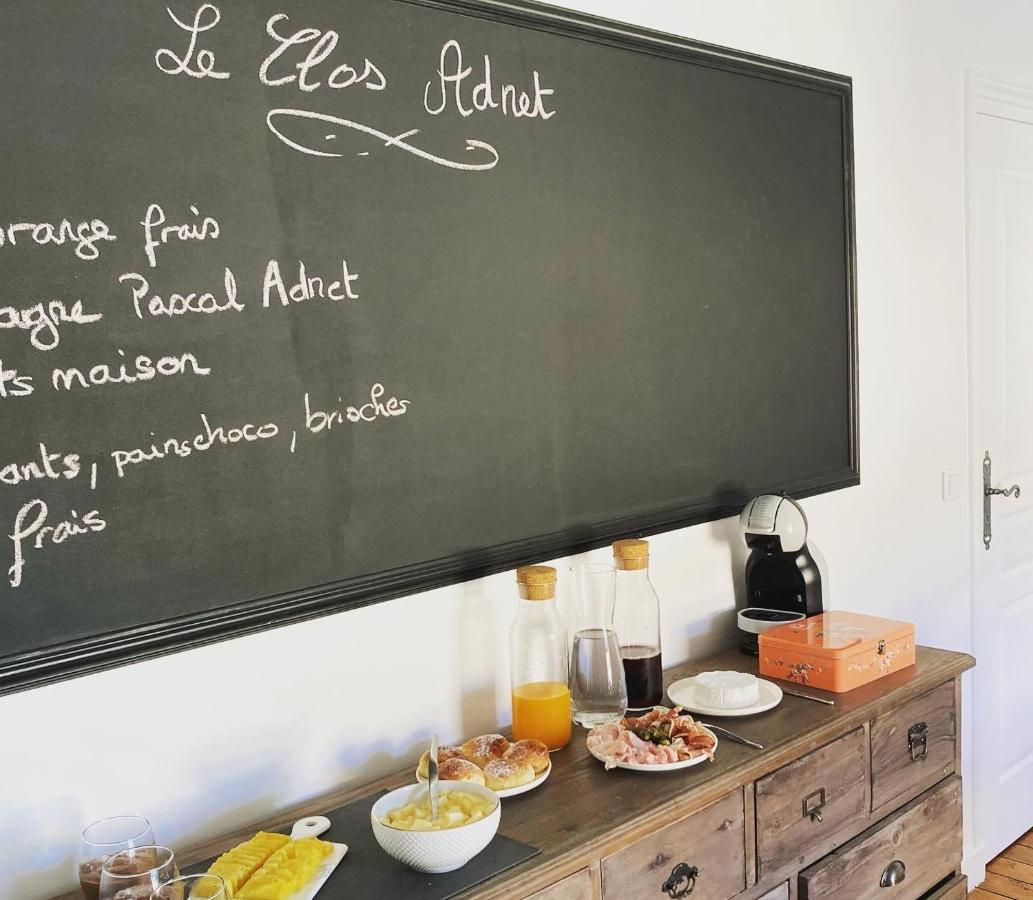 Le Clos Adnet
orange frais
agne Pascal Adnet
ts maison
ants, painschoco, brioches
frais